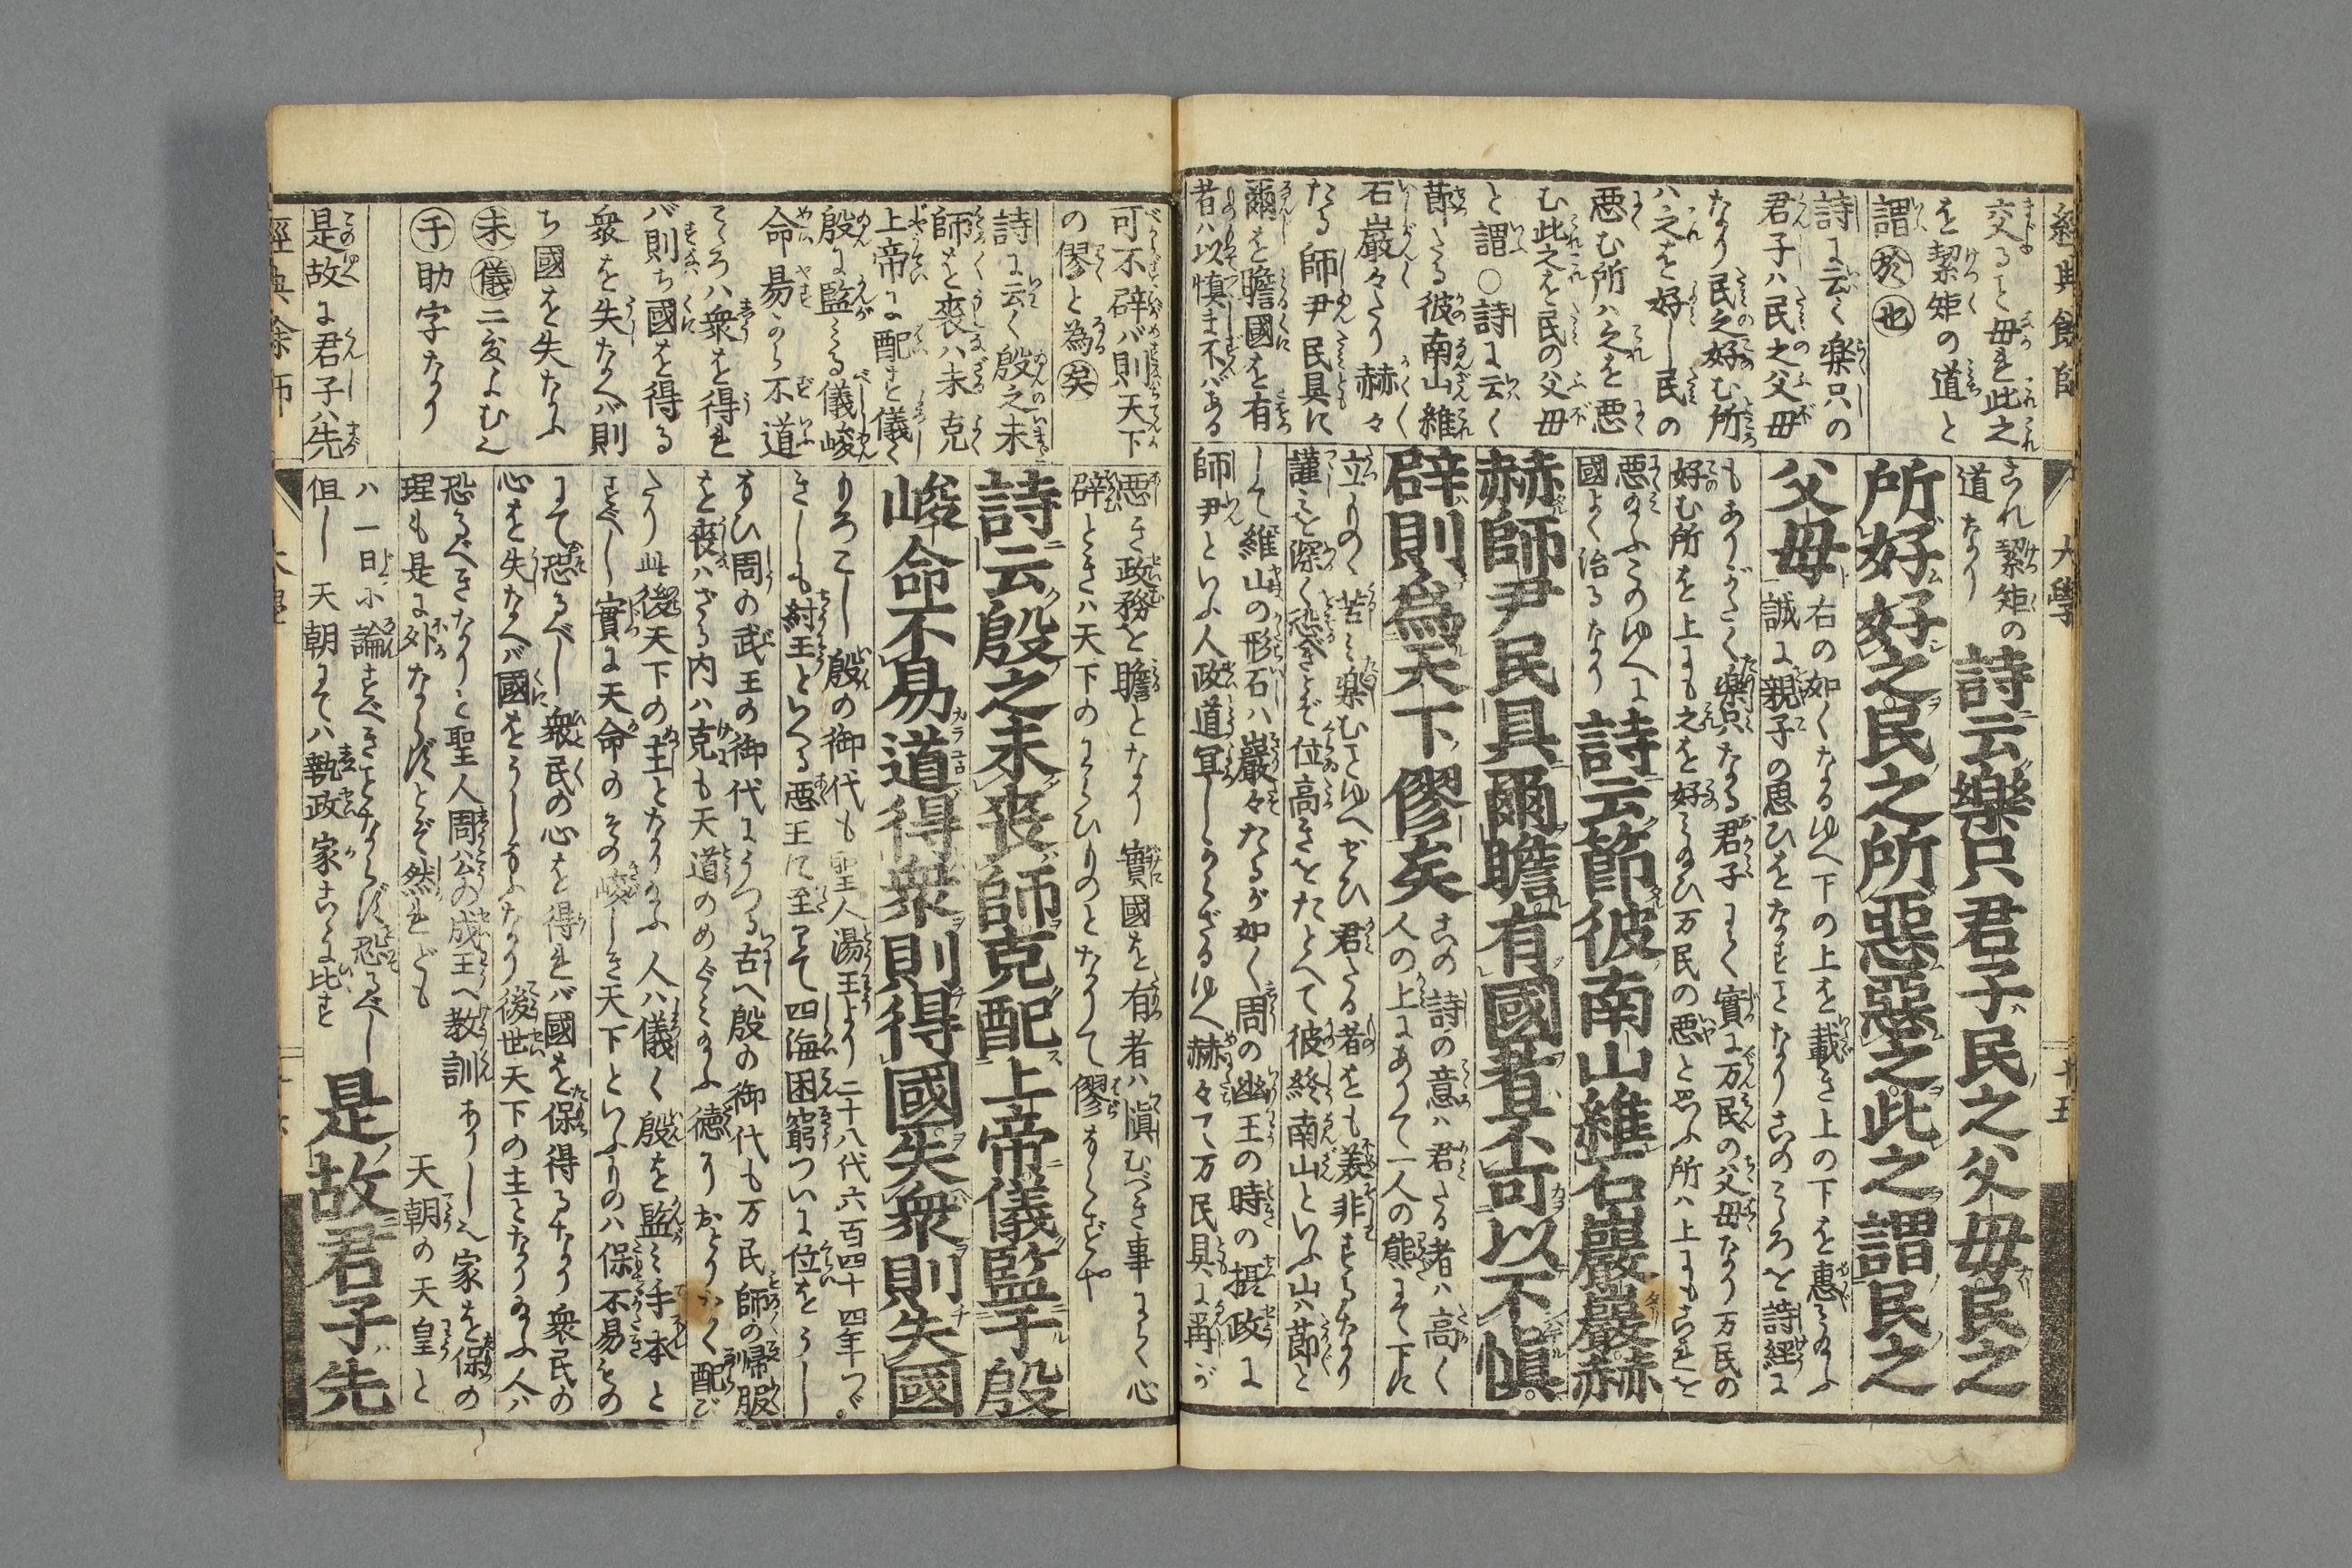 經典餘師
交ること毋れ此之
を絜矩の道と
謂 於 也
詩に云く楽只の
君子ハ民之父毋
なり民之好む所
ハ之を好し民の
悪む所ハ之を悪
む此之を民の父毋
と謂○詩に云く
節たる彼南山維
石巖々たり赫々
たる師尹民具に
爾を瞻國を有
者ハ以慎ま不バある
大學
十五
これ絜矩の
道なり
詩云樂只君子民之父毋民之
所好好之民之所惡惡之此之謂民之
父毋
右の如くなるゆへ下の上を載き上の下を惠ミ給ふ
誠に親子の思ひをなすことなりこのこころを詩經に
もありがたく楽只なる君子とく實に万民の父毋なり万民の
好む所を上にも之を好ミ給ひ万民の悪と思ふ所ハ上にもこれを
悪給ふこのゆへに
國よく治るなり
詩云節彼南山維石巖巖赫
赫師尹民具爾瞻有國者不可以不愼
辟則爲天下僇矣
この詩の意ハ君たる者ハ高く
人の上にありて一人の熊にて下に
立もの、苦ミ楽むことゆへぜひ君たる者をも羨非するなり
謹ミを深く恐べきとぞ位高きをたとへて彼終南山といふ山ハ節と
して維山の形石ハ巖々たるが如く周の幽王の時の摂政に
師尹といふ人政道正しからざるゆへ赫々て万民具に爾が
可不辟バ則天下
の僇と為 矣
詩に云く殷之未
師を喪ハ未克
上帝に配す儀く
殷に監ミる儀峻
命易からず不道
こころハ衆を得れ
バ則ち國を得る
衆を失なへバ則
ち國を失なふ
未 儀 二度よむ也
于 助字なり
是故に君子ハ先
悪き政務を瞻となり實國を有者ハ愼むべき事にて心
辟ときハ天下のわらひものとなりて僇ならずや
詩云殷之未喪師克配上帝儀監于殷
峻命不易道得衆則得國失衆則失國
ものこし殷の御代も聖人湯王より二十八代六百四十四年つゞ
きしも紂王といへる悪王に至りて四海困窮ついに位をうし
なひ周の武王の御代にうつる古へ殷の御代も万民師の帰服
を喪ハざる内ハ克も天道のめぐミ給ふ德をおとりがたく配び
たり此後天下の主となり給ふ人ハ儀く殷を監ミ手本と
すべし實に天命のその峻しき天下といふものハ保不易もの
にて恐るべし衆民の心を得れバ國を保得るなり衆民の
心を失なへバ國をうしなふなり後世天下の主となり給ふ人ハ
恐るべきなりと聖人周公の成王へ教訓ありし也家を保の
理も是に外ならずとぞ然れども
天朝の天皇と
ハ一日に論すべきことならず恐るべし
但し天朝にてハ執政家こゝに比す
是故君子先
經典餘師
大學